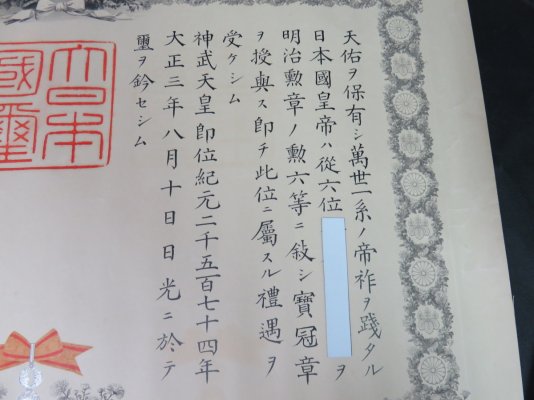 天佑ヲ保有シ萬世一系ノ帝祚ヲ踐タル
日本國皇帝ハ從六位ヲ
明治勲章ノ勲六等ニ敍シ寶冠章
ヲ授與ス即チ此位ニ屬スル禮遇ヲ
受ケシム
神武天皇即位紀元二千五百七十四年
大正三年八月十日日光ニ於テ
璽ヲ鈐セシム
大日本
國璽